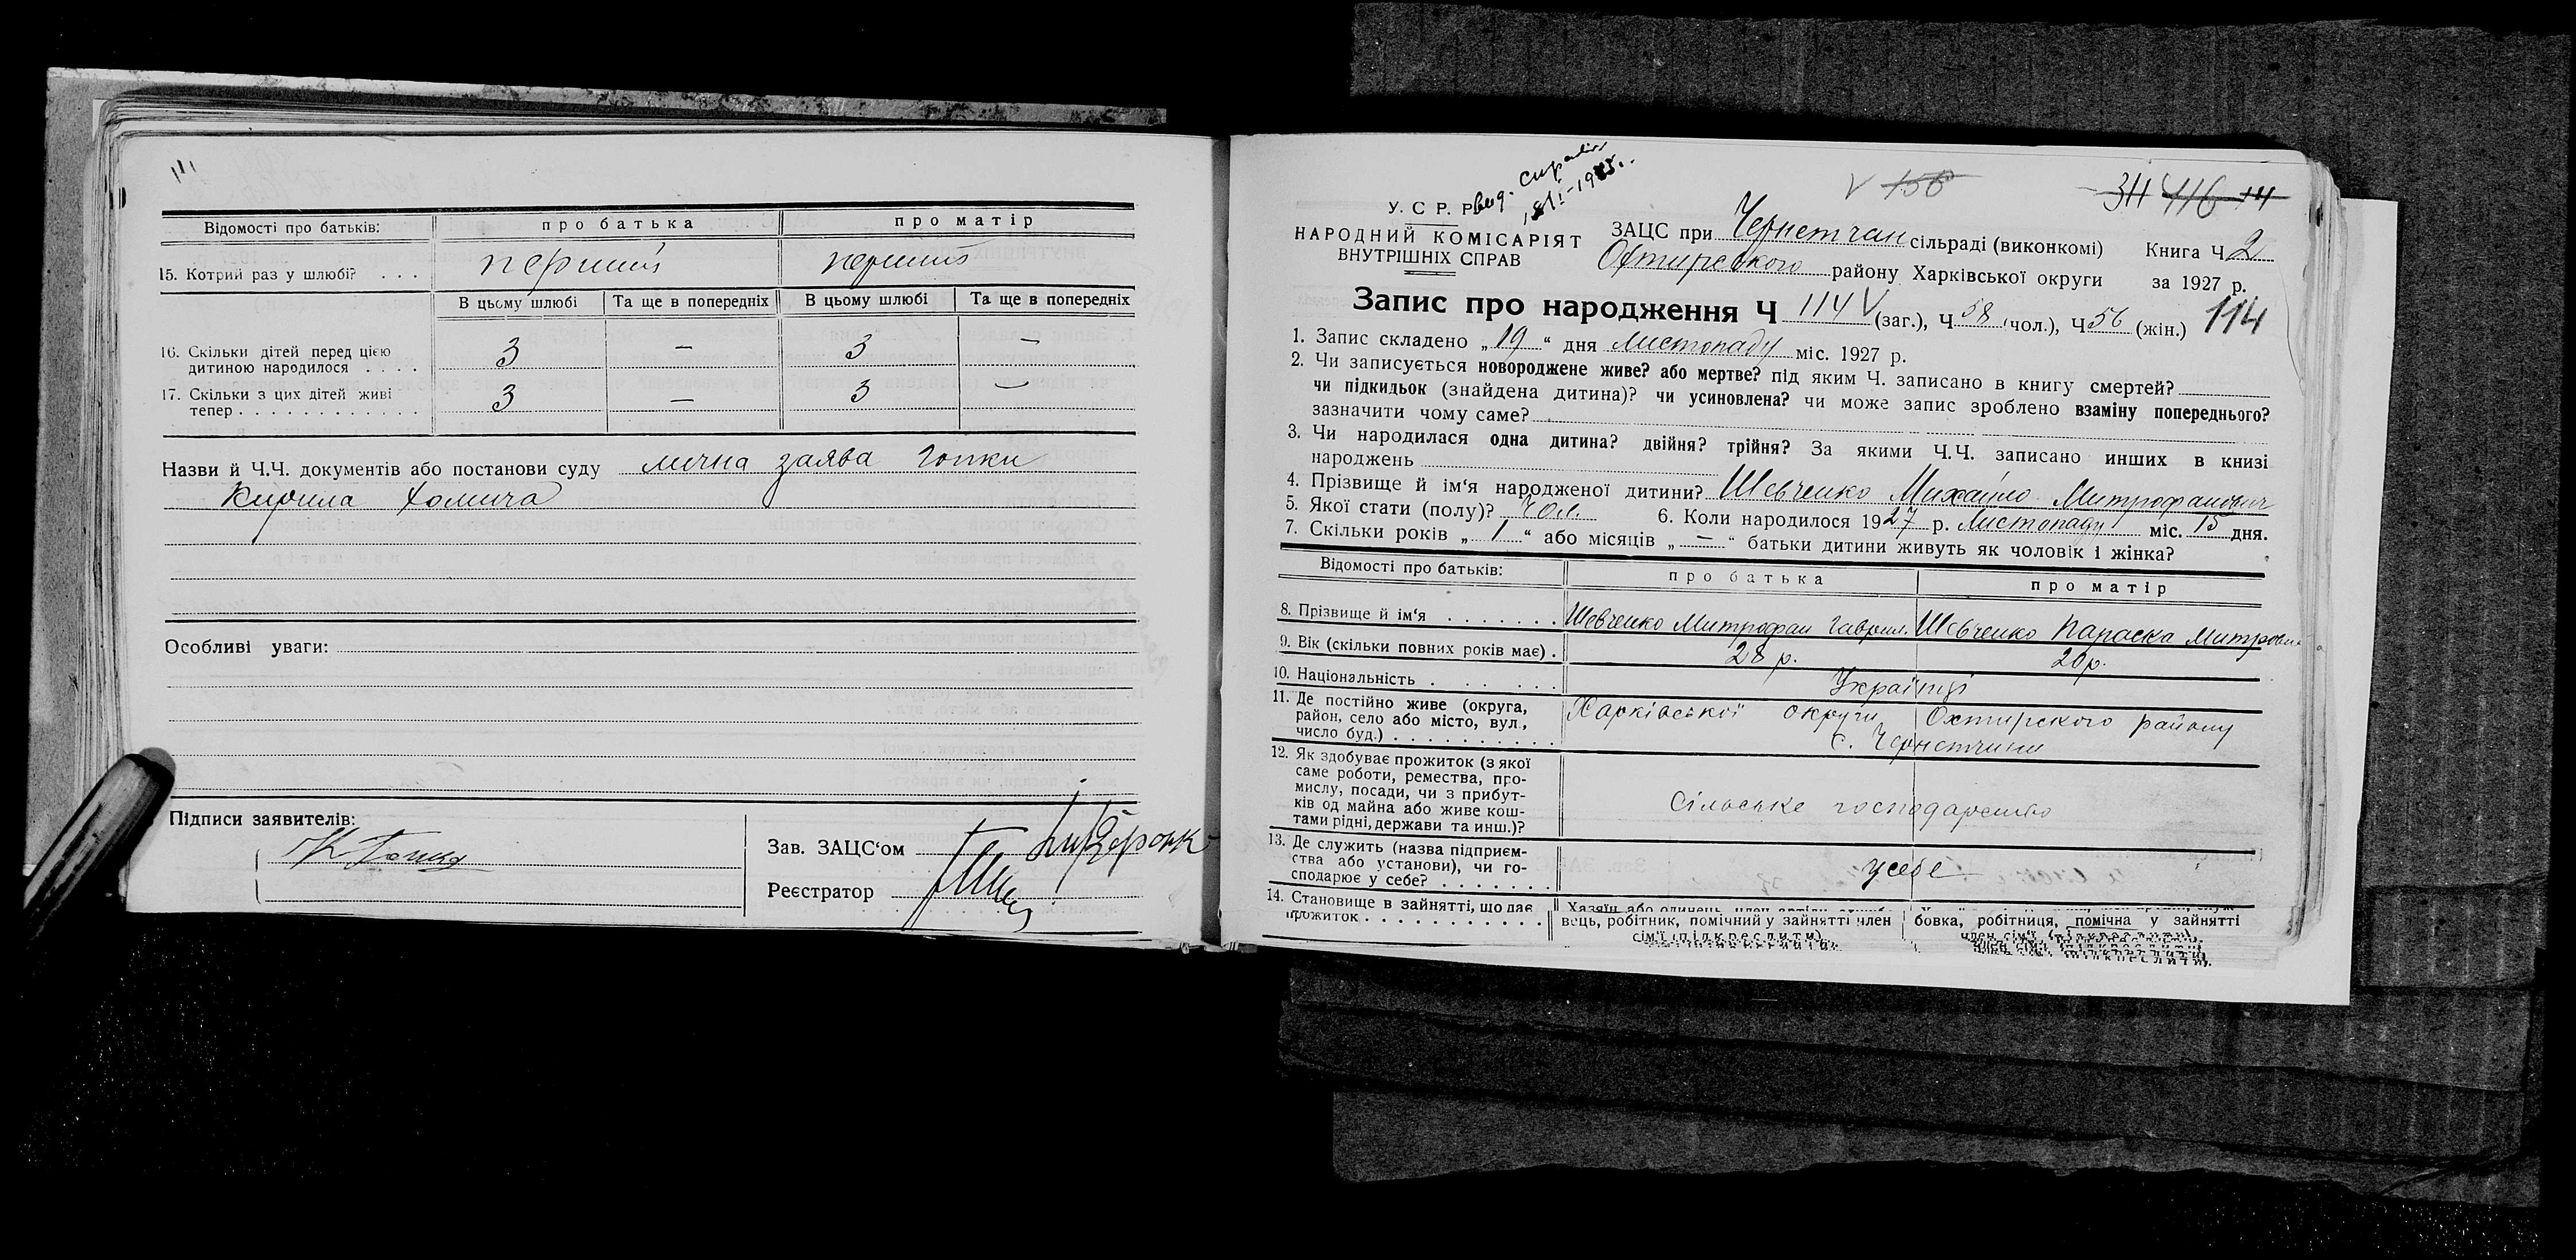 Відомості про батьків: про батька про матір
15. Котрий раз у шлюбі? . . . перший перший
В цьому шлюбі Та ще в попередніх В цьому шлюбі Та ще в попередніх
16. Скільки дітей перед цією
дитиною народилося . . . . 3 — 3 —
17. Скільки з цих дітей живі
тепер . . . . . . . . . . . . . 3 — 3 —
Назви й Ч.Ч. документів або постанови суду лична заява Гопки
Кирила Хомича
Особливі уваги:
Підписи заявителів:
К Гопка
Зав. ЗАЦС‘ом
Реєстратор
311 116 14
V 156
У. С Р. Р
НАРОДНИЙ КОМІСАРІЯТ
ВНУТРІШНІХ СПРАВ
ЗАЦС при Чернетчан сільраді (виконкомі) Книга Ч 2
Охтирського району Харківської округи за 1927 р.
Запис про народження Ч 114 V (заг.), Ч 58 (чол.), Ч 56 (жін.) 114
1. Запис складено „ 19 “ дня Листопаду міс. 1927 р.
2. Чи записується новороджене живе? або мертве? під яким Ч. записано в книгу смертей?
чи підкидьок (знайдена дитина)? чи усиновлена? чи може запис зроблено взаміну попереднього?
зазначити чому саме?
3. Чи народилася одна дитина? двійня? трійня? За якими Ч.Ч. записано инших в книзі
народжень
4. Прізвище й ім‘я народженої дитини? Шевченко Михайло Митрофанович
5. Якої стати (полу)? Чол. 6. Коли народилося 1927 р. Листопаду міс. 15 дня.
7. Скільки років „ 1 “ або місяців „ — “ батьки дитини живуть як чоловік і жінка?
Відомості про батьків: про батька про матір
8. Прізвище й ім‘я . . . . . . . Шевченко Митрофан Гаврил. Шевченко Параска Митрофан
9. Вік (скільки повних років має) . 28 р. 20 р.
10. Національність . . . . . Українці
11. Де постійно живе (округа,
район, село або місто, вул.,
число буд.) . . . . . . . . . . Харківської округи Охтирского району
с. Чернетчини
12. Як здобуває прожиток (з якої
саме роботи, ремества, про-
мислу, посади, чи з прибут-
ків од майна або живе кош-
тами рідні, держави та инш.)? Сільське господарство
13. Де служить (назва підприєм-
ства або установи), чи го-
сподарює у себе? . . . . . . . у себе
14. Становище в зайнятті, що дає
прожиток . . . . . . . . .
вець, робітник, помічний у зайнятті член
сім‘ї (підкреслити).
бовка, робітниця, помічна у зайнятті
член сім‘ї (підкреслити).